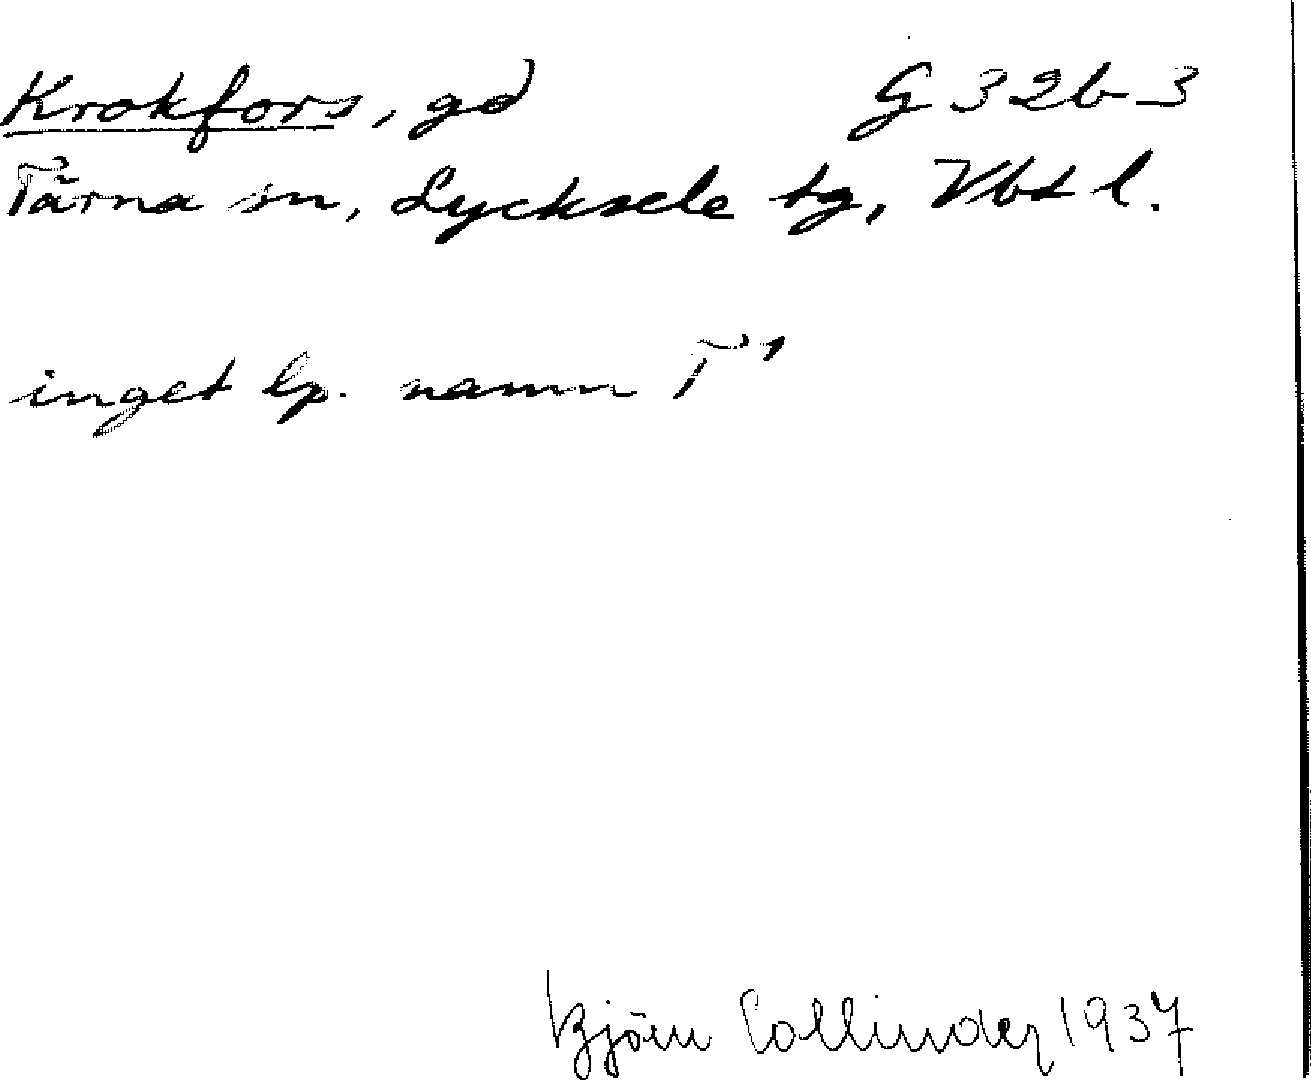 Krokfors, gd G 32b3
Tärna sn, Lycksele tg, Vbtl.
inget lp. namn T¹
Björn Collinder 1937